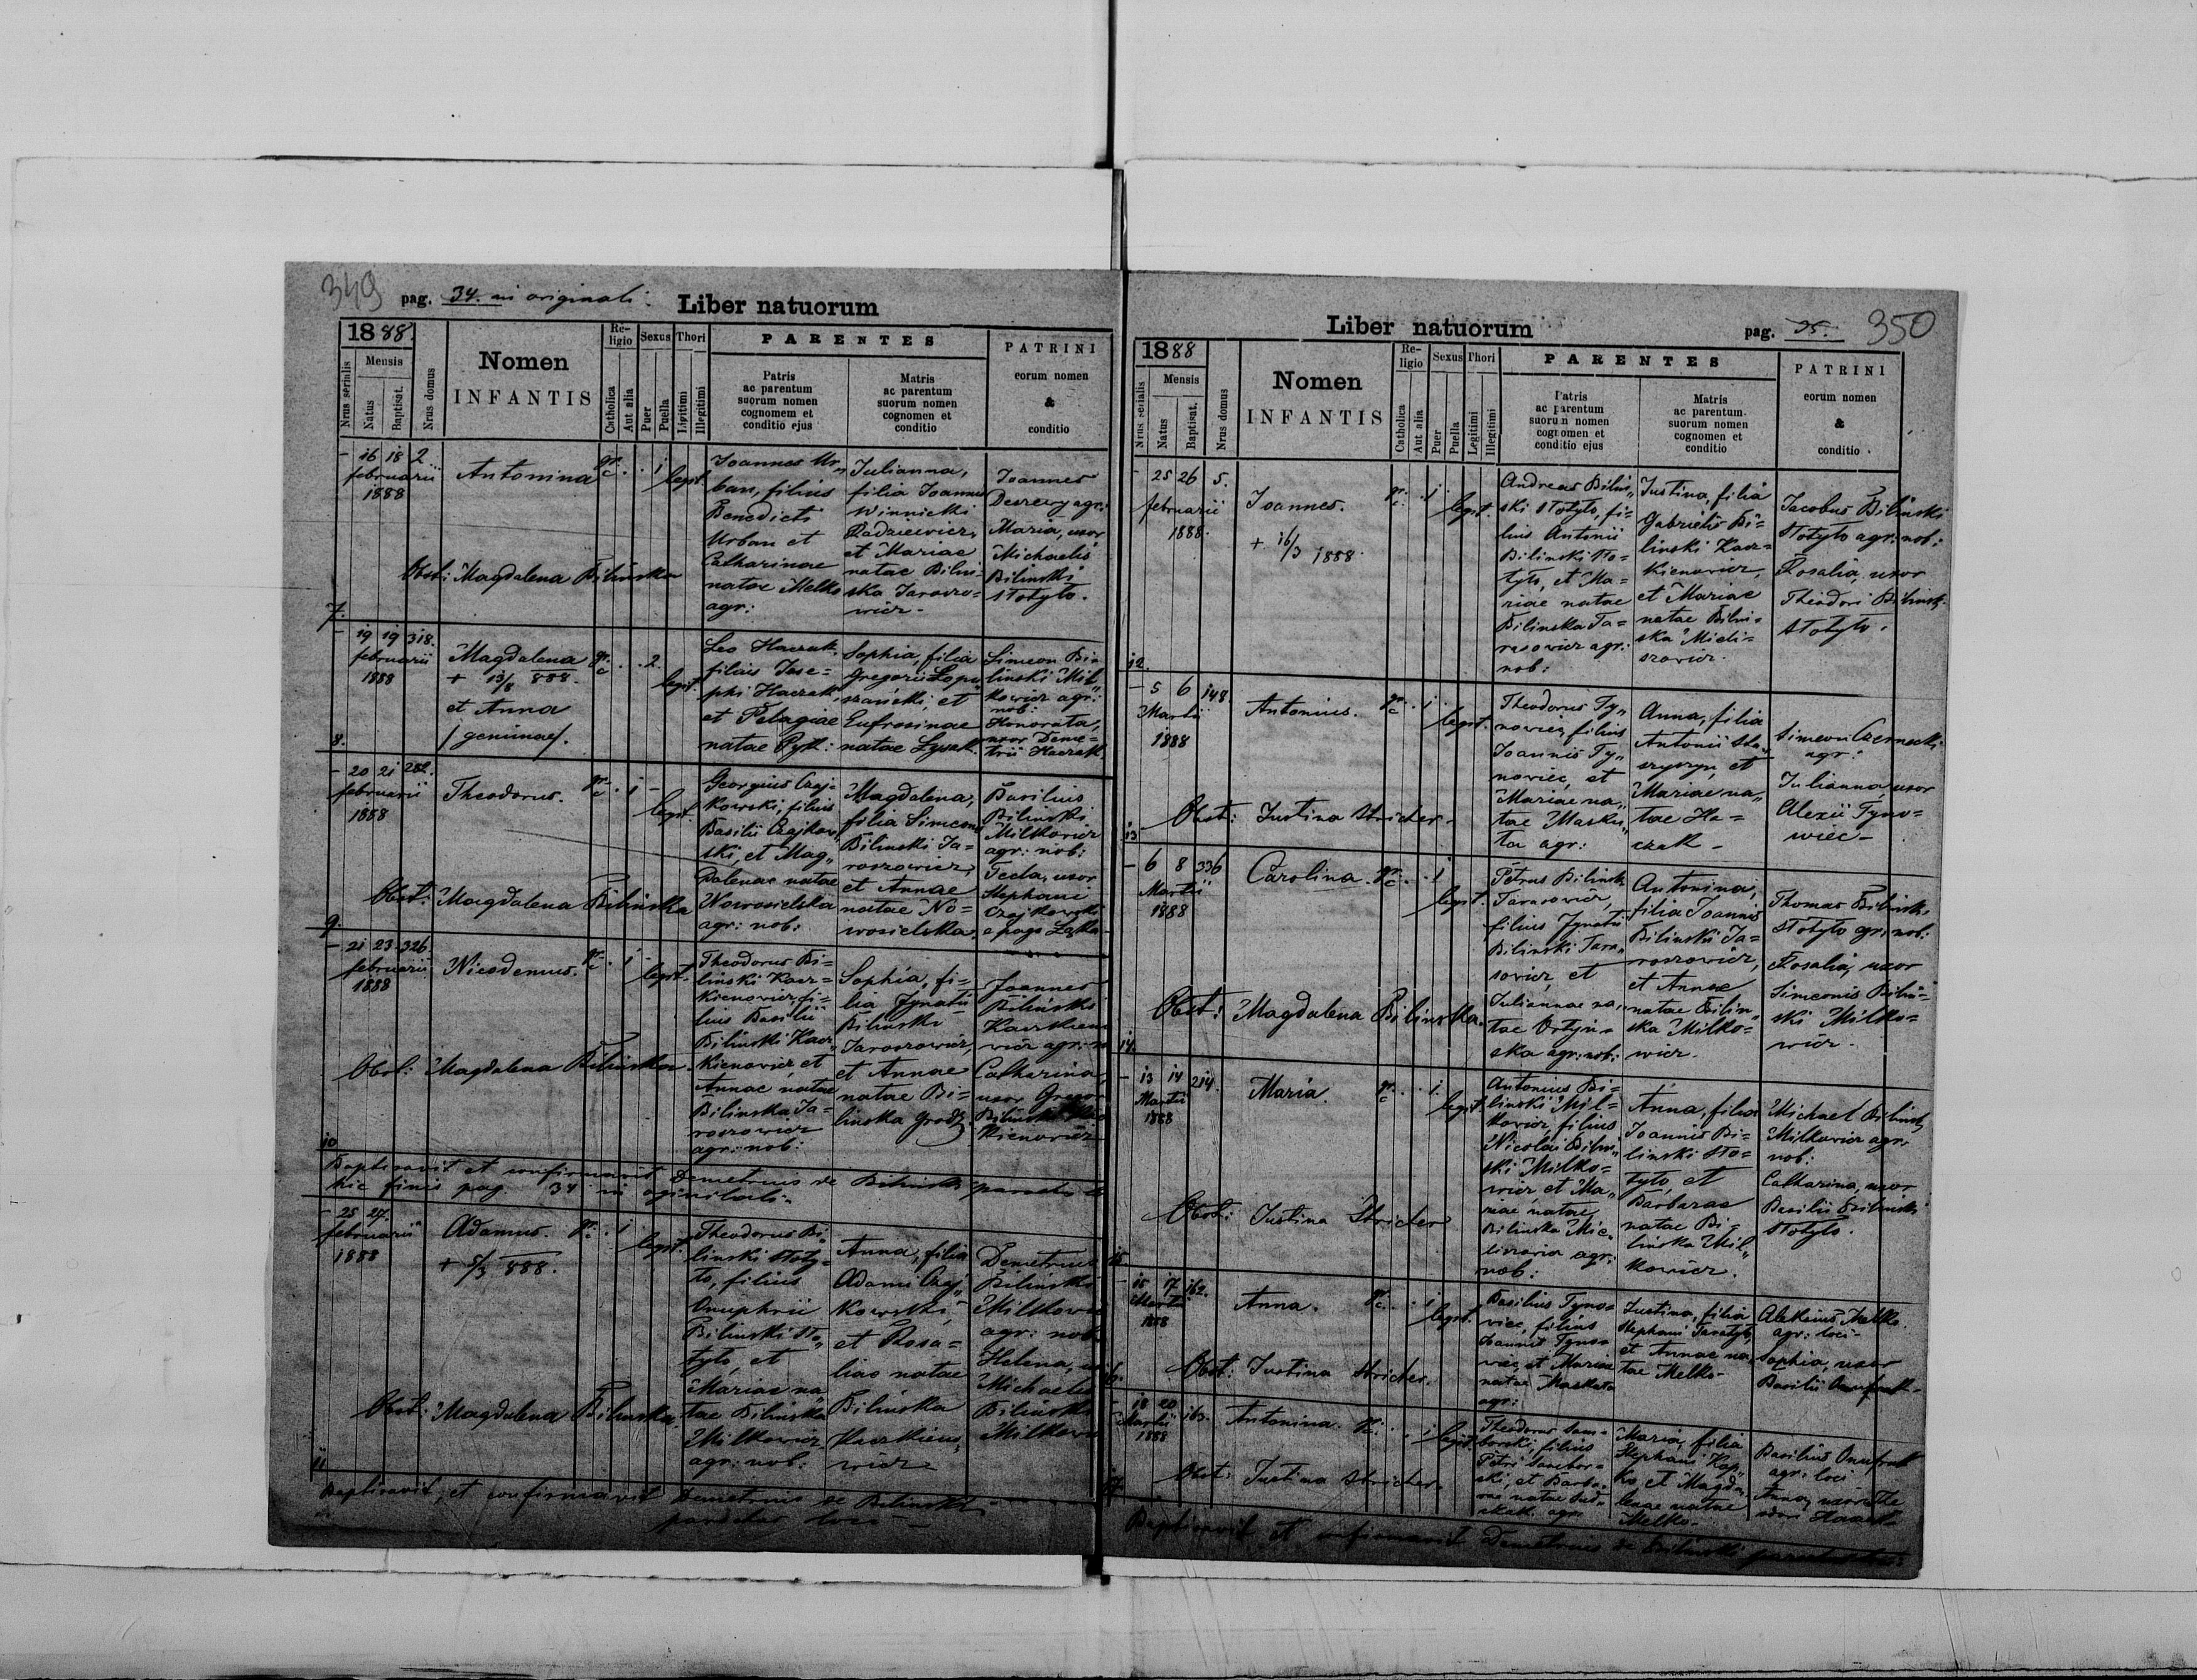 349
pag. 34. in originali.
Liber natuorum
1888.
Nrus serialis
Mensis
Natus
Baptisat.
Nrus domus
Nomen
INFANTIS
Re-
ligio
Catholica
Aut alia
Sexus
Puer
Puella
Thori
Legitimi
Illegitimi
PARENTES
Patris
ac parentum
suorum nomen
cognomem et
conditio ejus
Matris
ac parentum
suorum nomen
cognomen et
conditio
PATRINI
eorum nomen
&
conditio
7.
16 18 2
februarii
1888
Antonina
gr. c.
1
legit.
Joannes Ur„
ban, filius
Benedicti
Urban et
Catharinae
natae Melko
agr:
Julianna,
filia Joannis
Winnicki
et Mariae
natae Bilin-
ska Jaroszo=
wicz -
Joannes
agr:
Maria, uxor
Michaelis
Bilinski
Stotyto.
Obst: Magdalena Bilinska
8.
19 19 318.
februarii
1888
Magdalena
+ 13/8 888.
et Anna
/geminae/.
gr. c
2.
legit.
Leo Haczak
filius Jose=
phi Haczak
et Pelagiae
natae Pytl:
Sophia, filia
Gregorii Łopu„
szański, et
Eufrosinae
natae Lyszak.
Simeon Bi=
linski Mil„
kowicz agr:
nob:
Honorata,
uxor Deme=
trii Haczak
9.
20 21 282.
februarii
1888
Theodorus.
gr. c
1
legit.
Georgius Czaj=
kowski, filius
Basilii Czajkow
ski, et Mag„
dalenae natae
Nowosielska
agr: nob:
Magdalena,
filia Simeonis
Bilinski Ja=
roszowicz,
et Annae
natae No=
wosielska.
Basilius
Bilinski
Milkowicz
agr: nob:
Tecla, uxor
Stephani
Czajkowski
e pago Łąka
Obst: Magdalena Bilinska
10
21 23 326
februarii
1888
Nicodemus.
gr. c
1
legit.
Theodorus Bi=
linski Kacz=
kienowicz, fi=
lius Basilii
Bilinski Kacz„
kienowicz, et
Annae natae
Bilinska Ja=
roszowicz
agr: nob:
Sophia, fi=
lia Ignatii
Bilinski
Jaroszowicz,
et Annae
natae Bi=
linska Grodz.
Joannes
Bilinski
Kaczkieno
wicz agr: n
Catharina,
uxor Gregor
Bilinski
kienowicz
Obst: Magdalena Bilinska
Baptisavit et confirmavit Demetrius de Bilinski parochus
hic finis pag. 34 in originali.
11
25 27.
februarii
1888
Adamus.
+ 5/3 888.
gr. c
1
legit.
Theodorus Bi„
linski Stoty=
to, filius
Onuphrii
Bilinski Sto„
tyto, et
Mariae na
tae Bilinska
Milkowicz
agr: nob:
Anna, filia
Adami Czaj„
kowski,
et Rosa=
liae natae
Bilinska
Kaczkieno„
wicz
Demetrius
Bilinski
Milkowicz
agr: nob
Helena,
Michaelis
Bilinski
Milkow
Obst: Magdalena Bilinska
Baptisavit, et confirmavit Demetrius de Bilinski
parochus loci
Liber natuorum
pag. 35.
350
1888
Nrus serialis
Mensis
Natus
Baptisat.
Nrus domus
Nomen
INFANTIS
Re-
ligio
Catholica
Aut alia
Sexus
Puer
Puella
Thori
Legitimi
Illegitimi
PARENTES
Patris
ac parentum
suorun nomen
cognomen et
conditio ejus
Matris
ac parentum
suorum nomen
cognomen et
conditio
PATRINI
eorum nomen
&
conditio
12.
25 26 5.
februarii
1888.
Joannes.
+ 16/3 1888.
gr. c.
1
legit.
Andreas Bilin„
ski Stotyto, fi=
lius Antonii
Bilinski Sto=
tyto, et Ma=
riae natae
Bilinska Ta=
rasowicz agr:
nob:
Justina, filia
Gabrielis Bi=
linski Kacz=
kienowicz,
et Mariae
natae Bilin=
ska Micli=
szowicz.
Jacobus Bilinski
Stotyto agr: nob:
Rosalia, uxor
Theodori Bilinski
Stotyto.
13
5 6 148
Martii
1888
Antonius.
gr. c
1
legit.
Theodorus Ty„
nowiec, filius
Joannis Ty„
nowiec, et
Mariae na„
tae Masku„
ta agr:
Anna, filia
Antonii Sta„
szyszyn, et
Mariae na„
tae Ha=
czak -
Simeon Czernecki
agr:
Julianna, uxor
Alexii Tyno=
wiec -
Obst: Justina Stricher.
14.
6 8 336
Martii
1888
Carolina.
gr. c
1
legit.
Petrus Bilinski
Tarasowicz,
filius Ignatii
Bilinski Tara„
sowicz, et
Juliannae na„
tae Ortyn=
ska agr: nob:
Antonina,
filia Joannis
Bilinski Ja=
roszowicz,
et Annae
natae Bilin„
ska Milko=
wicz.
Thomas Bilinski
Stotyto agr: nob:
Rosalia, uxor
Simeonis Bilin=
ski Milko=
wicz.
Obst: Magdalena Bilinska.
15
13 14 214.
Martii
1888
Maria.
gr. c
1.
legit.
Antonius Bi=
linski Mil=
kowicz, filius
Nicolai Bilin„
ski Milko=
wicz et Ma„
riae natae
Bilinska Mic„
liszowicz agr:
nob:
Anna, filia
Joannis Bi=
linski Sto=
tyto, et
Barbarae
natae Bi=
linska Mil„
kowicz.
Michael Bilinski
Milkowicz agr:
nob:
Catharina, uxor
Basilii Bilinski
Stotyto.
Obst: Justina Stricher
16.
15 17 162.
Martii
1888
Anna.
gr. c.
1
legit.
Basilius Tyno=
wiec, filius
Joannis Tyno=
wiec, et Mariae
natae Maskuta
agr:
Justina, filia
Stephani
et Annae na„
tae Melko-
Aleksius Melko.
agr: loci-
Sophia, uxor
Basilii Onufrak-
Obst: Justina Stricher.
17
18 20 163.
Martii
1888
Antonina.
gr. c.
1
legit.
Theodorus Sam=
borski, filius
Petri Sambor=
ski, et Barba=
rae natae
agr:
Maria, filia
Stephani
et Magda„
lenae natae
Melko-
Basilius Onufrak
agr: loci
Anna, uxor The
odori Haczak
Obst: Justina Stricher.
Baptisavit et confirmavit Demetrius de Bilinski parochus loci